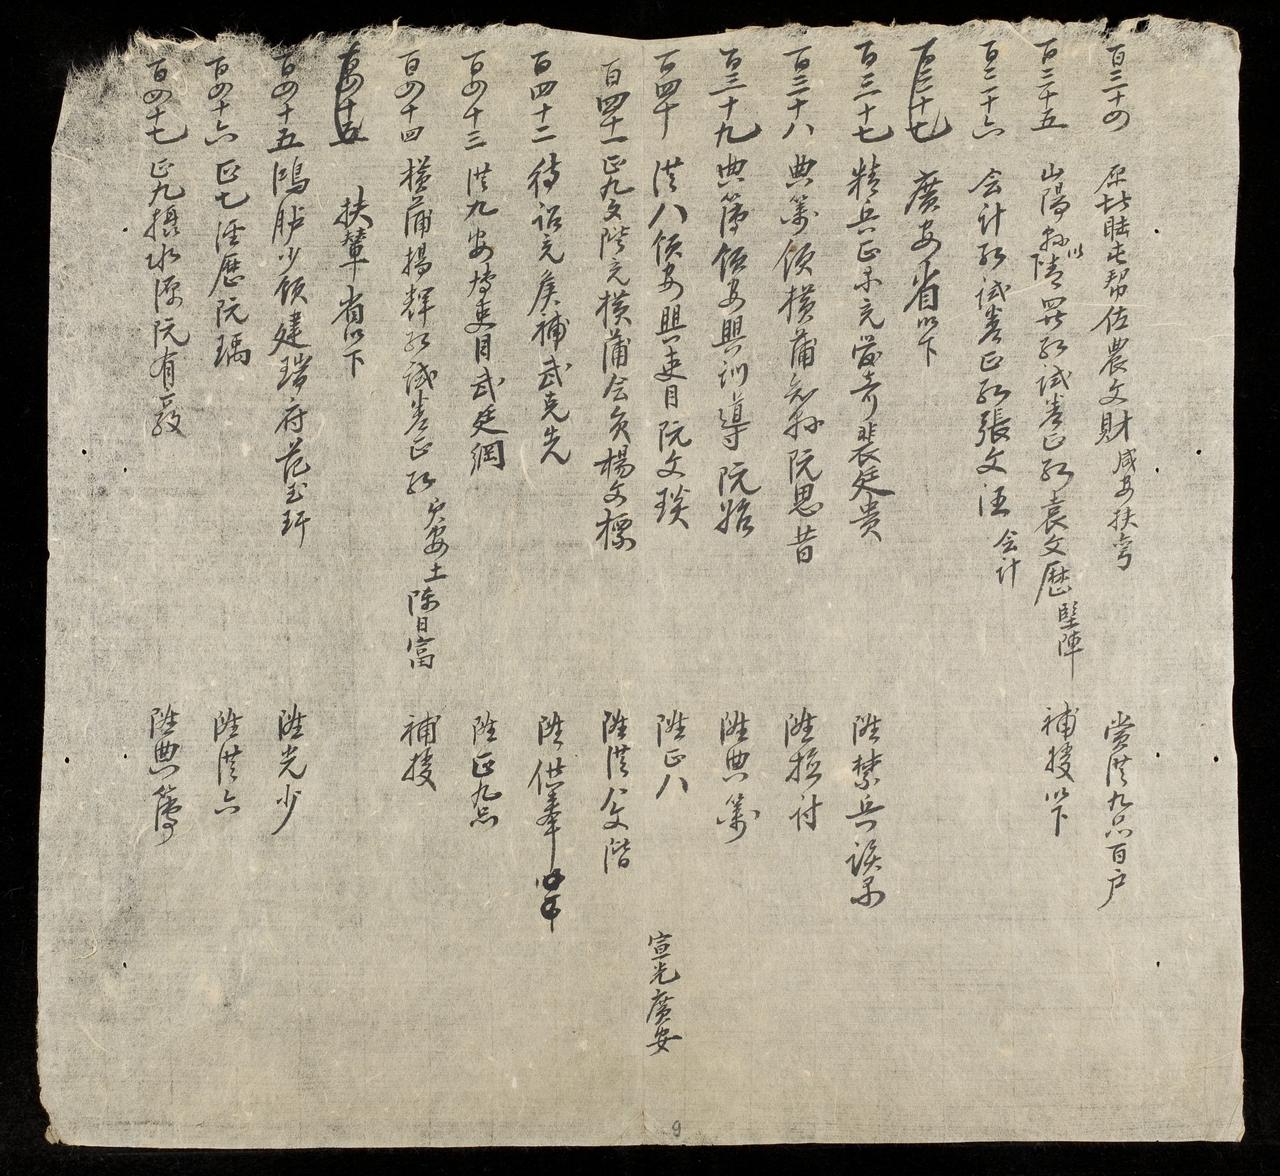 百三十四 原 屯帮佐農文財 咸安扶寧 賞從九品百户
百三十五 山陽 試差正 袁文歷 堅陣 補授以下
百三十六 会计 試差正 張文汪 会计
百三十七 廣安省以下
百三十七 精兵正 充 奇裴廷贵 陞禁兵 
百三十八 典籍領橫蒲 阮思昔 陞檢討
百三十九 典簿領安興訓導阮 陞典籍
百四十 從八領安興吏目阮文琰 陞正八
百四十一 正九文階充橫蒲会員楊文標 陞從八文階
百四十二 待詔充 候補武克先 陞供奉
百四十三 從九安 吏目武廷綱 陞正九品
百四十四 橫蒲揚輝 試差正 安土陈日富 補授
百四十五 扶輦省以下
百四十五 鴻胪少領建瑞府范玉玕 陞光少
百四十六 正七 歷阮瑀 陞從六
百四十七 正九摄水源阮有 陞典簿
宣光廣安
9